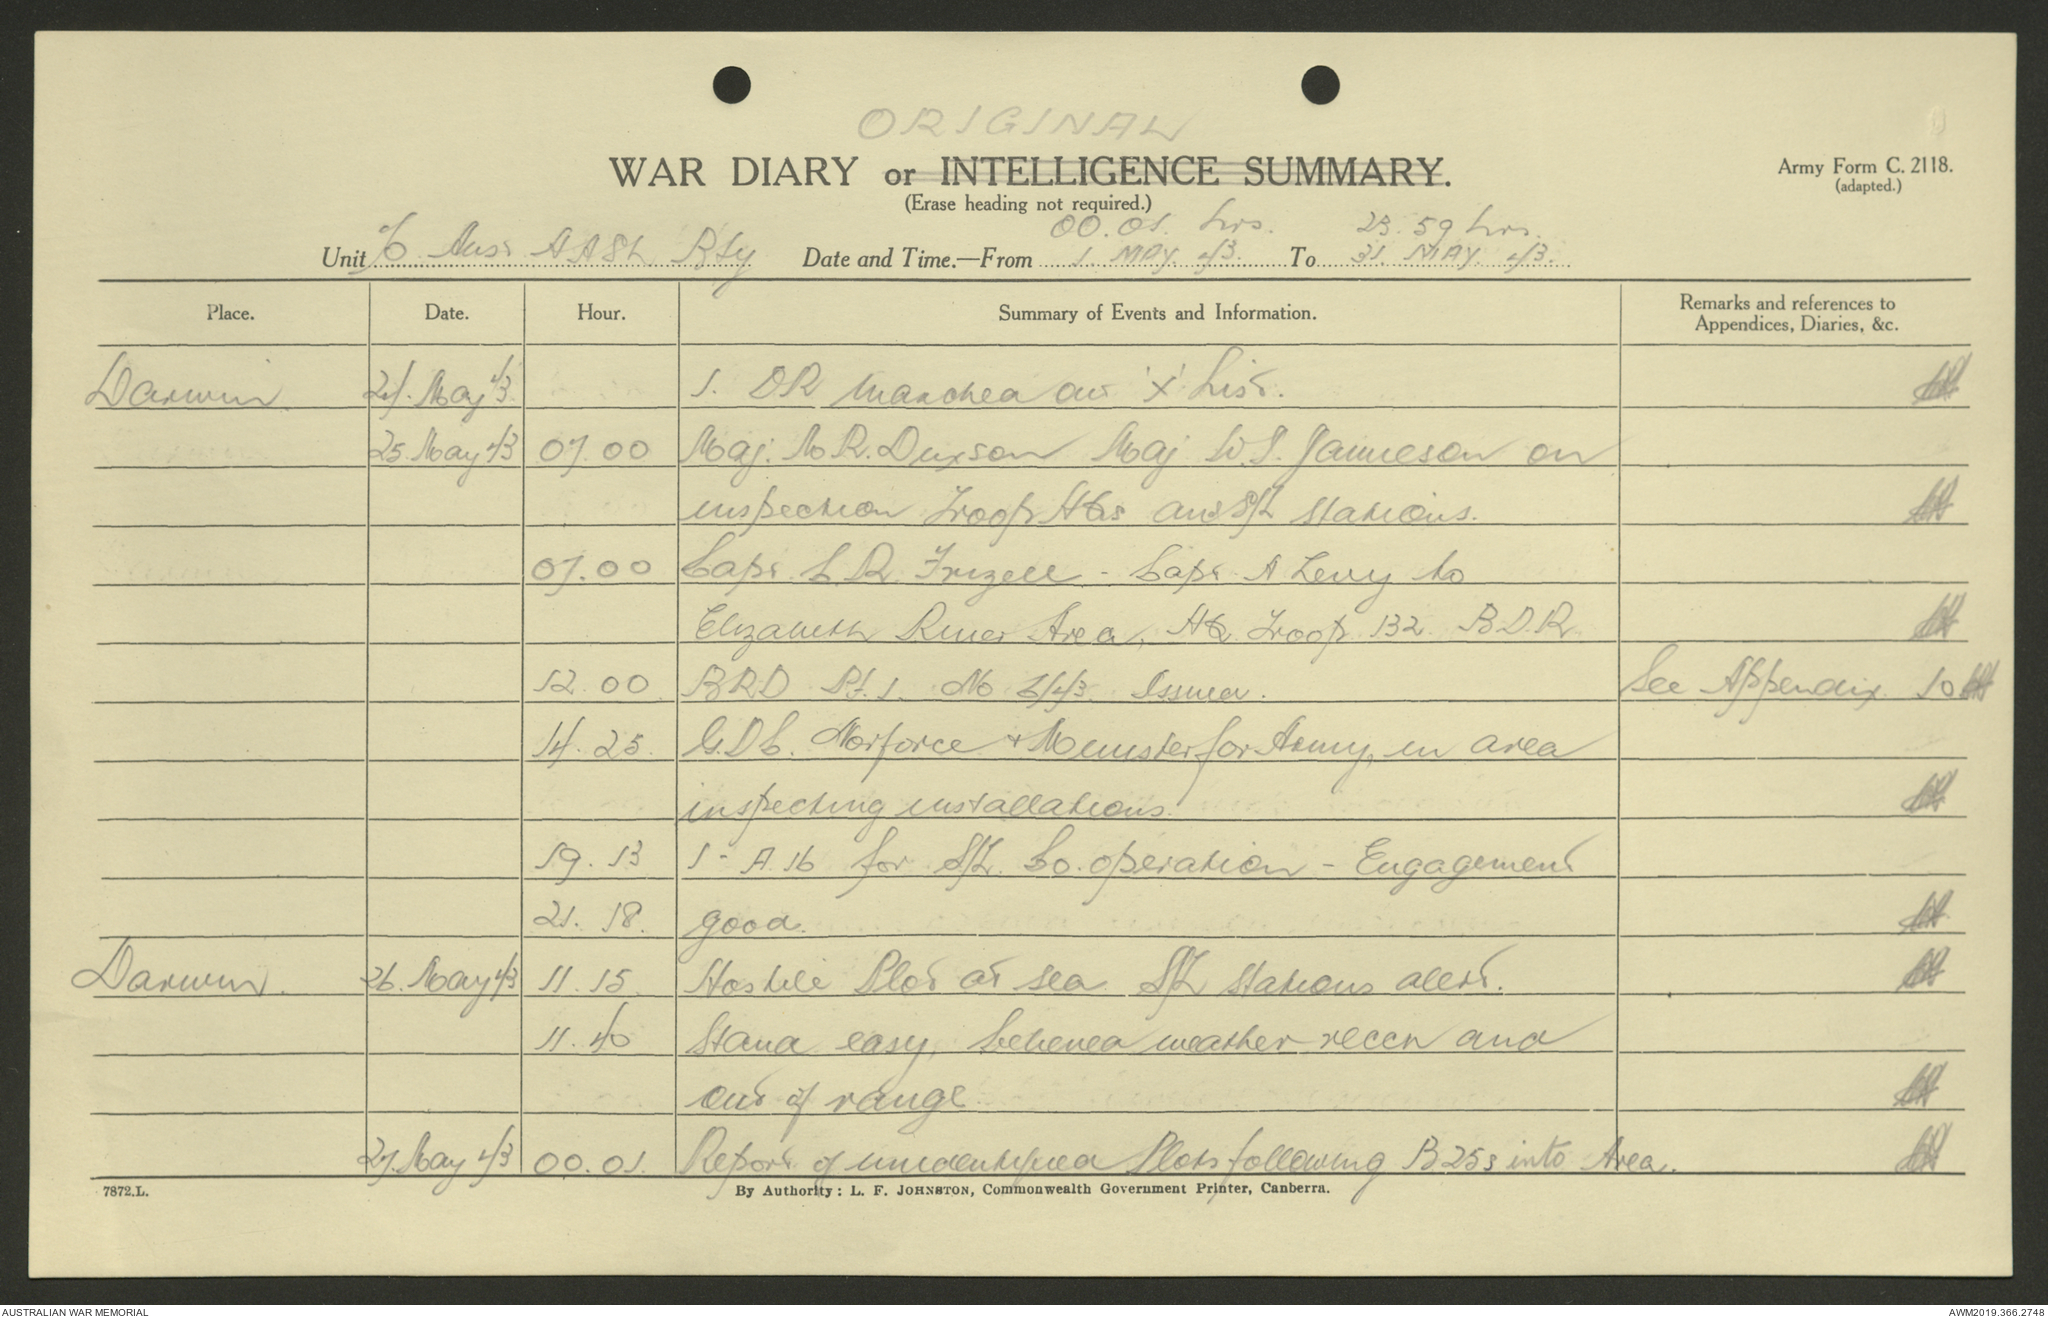 ORIGINAL
WAR DIARY or INTELLIGENCE SUMMARY.
Army Form C. 2118.
(adapted.)
(Erase heading not required.)
00.01. hrs. 23.59 hrs.
Unit Aust A.A S/L Bty Date and Time.—From 1. MAY. 43. To 31. MAY. 43.
Place. Date. Hour. Summary of Events and Information. Remarks and references to Appendices, Diaries, &c.
Darwin 24. May 43 1. OR marched out 'X' List.
25. May 43 07.00 Maj. R. Duxson Maj W.J. Jamieson on
inspection Troop HQs and S/L Stations.
07.00 Capt. C.R. Frizell - Capt A Levy to
Elizabeth River Area, HQ. Troop 132 B.D.R.
12.00 BRO Pt. 1. No 6/43. Issued. See Appendix 10
14.25. G.O.C. Norforce & Minister for Army, in area
inspecting installations.
19.13 1 - A.16 for S/L Co.operation - Engagement
21.18. good.
Darwin. 26. May 43 11.15 Hostile Plot at sea S/L stations alert.
11.40 Stand easy, believed weather reccn and
out of range
27. May 43 00.01. Report of unidentified Plots following B25s into Area.
7872.L. By Authority: L. F. JOHNSTON, Commonwealth Government Printer, Canberra.
AUSTRALIAN WAR MEMORIAL AWM2019.366.2748